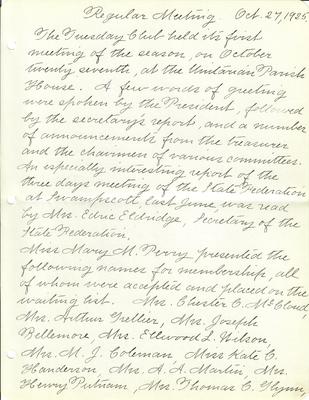 Regular Meeting. Oct. 27, 1925.
The Tuesday Club held its first
meeting of the season, on October
twenty seventh, at the Unitarian Parish
House. A few words of greeting
were spoken by the President, followed
by the secretary's report, and a number
of announcements from the treasurer
and the chairmen of various committees.
An especially interesting report of the
three days meeting of the State Federation
at Swampscott last June, was read
by Mrs. Edne Eldridge, Secretary of the
State Federation.
Miss Mary M. Perry presented the
following names for membership, all
of whom were accepted and placed on the
waiting list. Mrs. Chester C. McCloud,
Mrs. Arthur Trellier, Mrs. Joseph
Bellemore, Mrs. Ellwood L. Wilson,
Mrs. M. J. Coleman, Miss Kate C.
Handerson, Mrs. A. A. Martin, Mrs.
Henry Putnam, Mrs. Thomas C. Flynn,